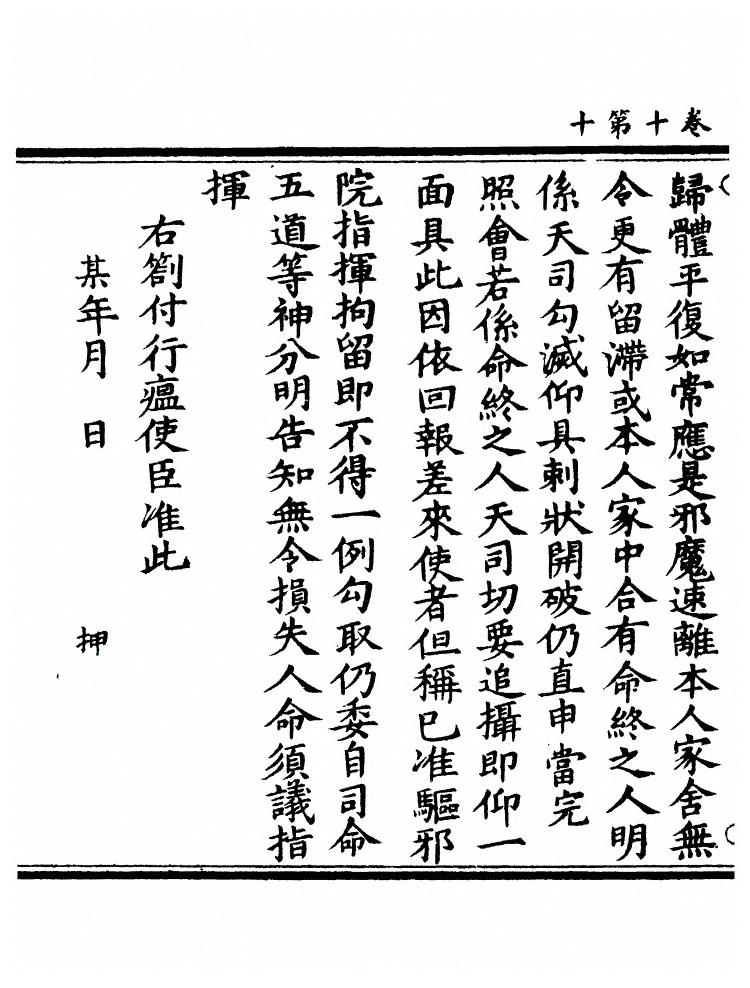 卷十第十
歸體平復如常應是邪魔速離本人家舍無
令更有留滯或本人家中合有命終之人明
係天司勾滅仰具刺狀開破仍直申當完
照會若係命終之人天司切要追攝即仰一
面具此因依回報差來使者但稱已准驅邪
院指揮拘留即不得一例勾取仍委自司命
五道等神分明告知無令損失人命須議指
揮
右劄付行瘟使臣准此
某年月 日 押